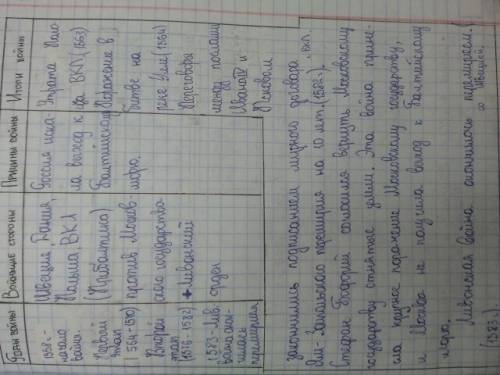 войны
Воюющие стороны
Причины войны
Итоги войны
1558г.-
начало
война.
Первый
этап
(1564-1570)
Второй
этап
(1576-1582)
1583-Лив.
война окон-
чилась
перемирием
Швеция, Дания,
Польша ВКЛ
(Прибалтика)
против Москов-
ского государства
+ Ливонский
орден
Россия иска-
ла выход к
Балтийскому
морю.
Утрата Поло-
цка ВКЛ (1563)
Поражение в
битве на
реке Уле (1564)
Переговоры
между послами
Ивана IV и
Псковом
закончились подписанием мирного договора
Ям-Запольского перемирия на 10 лет. (1582г.), ВКЛ
Стефан Баторий согласился вернуть Московскому
государству отнятые земли. Эта война прине-
сла крупное поражение Московскому государству,
и Москва не получила выход к Балтийскому
морю. Ливонская война окончилась перемирием с Швецией
(1583).